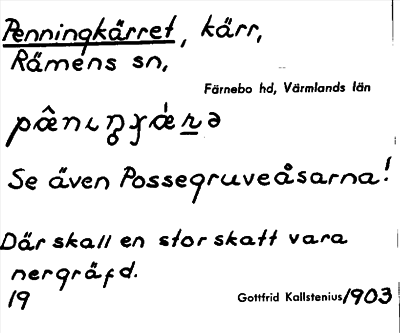 Penningkärret, kärr,
Rämens sn,
Färnebo hd, Värmlands län
Se även Possegruveåsarna!
Där skall en stor skatt vara
nergräfd.
19
Gottfrid Kallstenius 1903